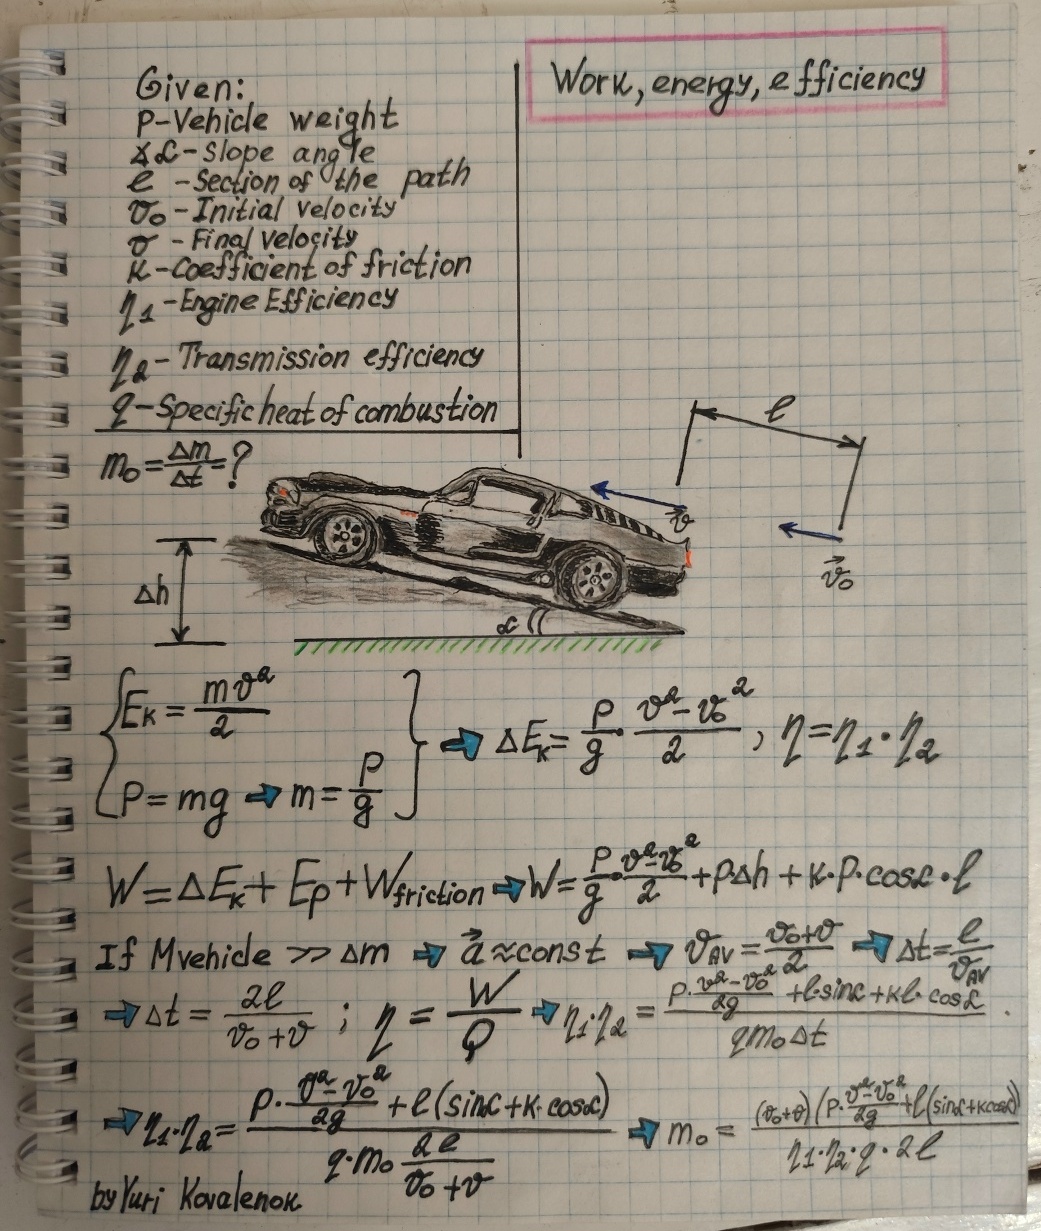 Work, energy, efficiency
Given:
P-Vehicle weight
∡α-Slope angle
ℓ -Section of the path
v₀-Initial velocity
v - Final velocity
K-Coefficient of friction
η₁-Engine Efficiency
η₂- Transmission efficiency
q-Specific heat of combustion
m₀=Δm/Δt=?
ℓ
v⃗
v⃗₀
Δh
α
{E_K = mv²/2
P=mg ➡ m=P/g} ➡ ΔE_K= P/g · (v²-v₀²)/2 , η=η₁·η₂
W=ΔE_K+E_P+W_friction ➡ W= P/g · (v²-v₀²)/2 +P·Δh+K·P·cosα·ℓ
If Mvehicle >> Δm ➡ a⃗≈const ➡ v_AV = (v₀+v)/2 ➡ Δt= ℓ/v_AV
➡ Δt = 2ℓ/(v₀+v) ; η = W/Q ➡ η₁·η₂ = (P·(v²-v₀²)/2g +ℓ·sinα+Kℓ·cosα)/(qm₀Δt) .
➡ η₁·η₂= (P·(v²-v₀²)/2g +ℓ(sinα+K·cosα))/(q·m₀ 2ℓ/(v₀+v)) ➡ m₀ = ((v₀+v)(P·(v²-v₀²)/2g +ℓ(sinα+Kcosα))/(η₁·η₂·q·2ℓ)
by Yuri Kovalenok